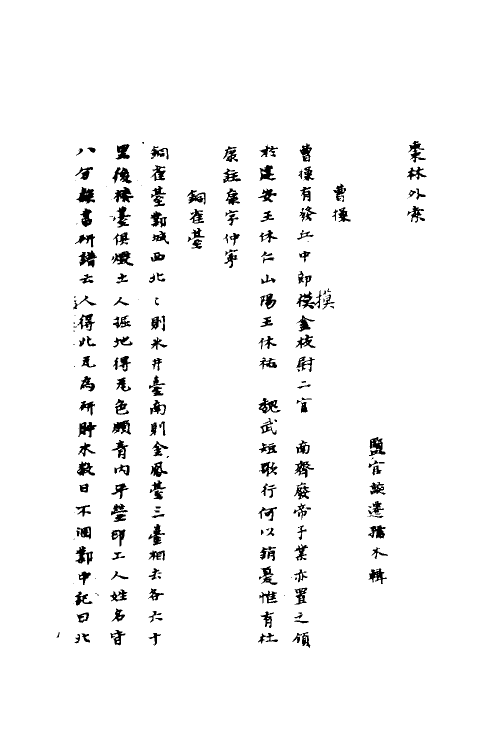 棗林外索
鹽官談遷孺木輯
曹操
曹操有發丘中郎摸金校尉二官　南齊廢帝子業亦置之領
摸
於建安王休仁山陽王休祐　魏武短歌行何以銷憂惟有杜
康註康字仲寧
銅雀臺
銅雀臺鄴城西北〻則氷井臺南則金鳳臺三臺相去各六十
里後樓臺俱燬土人掘地得瓦色頗青內平瑩印工人姓名皆
八分隸書研譜云人得此瓦為研貯水數日不涸鄴中記曰北